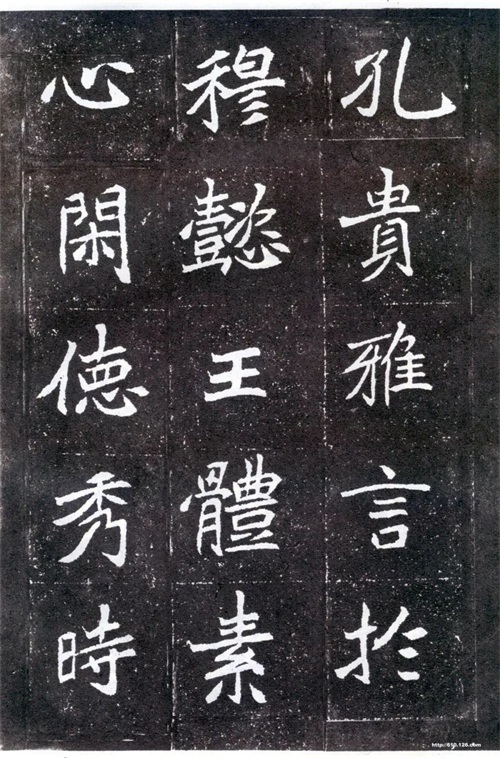 孔貴雅言於
穆懿王體素
心閑德秀時
http://610.126.com